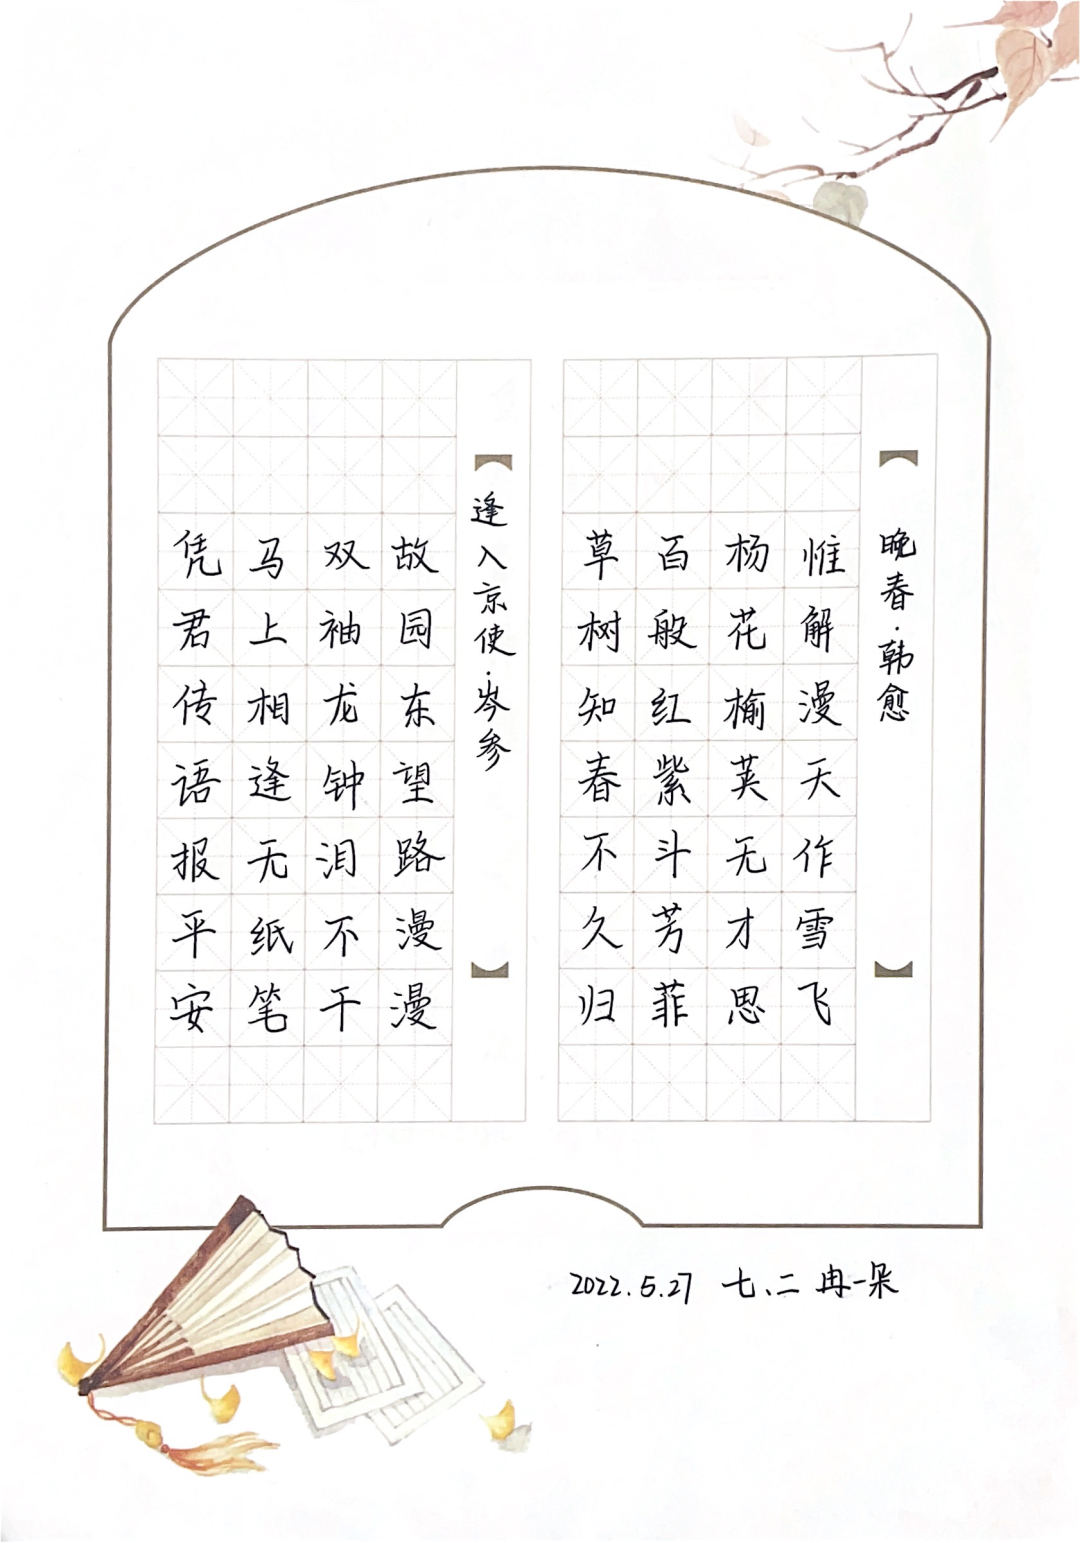 晚春·韩愈
惟解漫天作雪飞
杨花榆荚无才思
百般红紫斗芳菲
草树知春不久归
逢入京使·岑参
故园东望路漫漫
双袖龙钟泪不干
马上相逢无纸笔
凭君传语报平安
2022.5.27 七、二 冉一朵